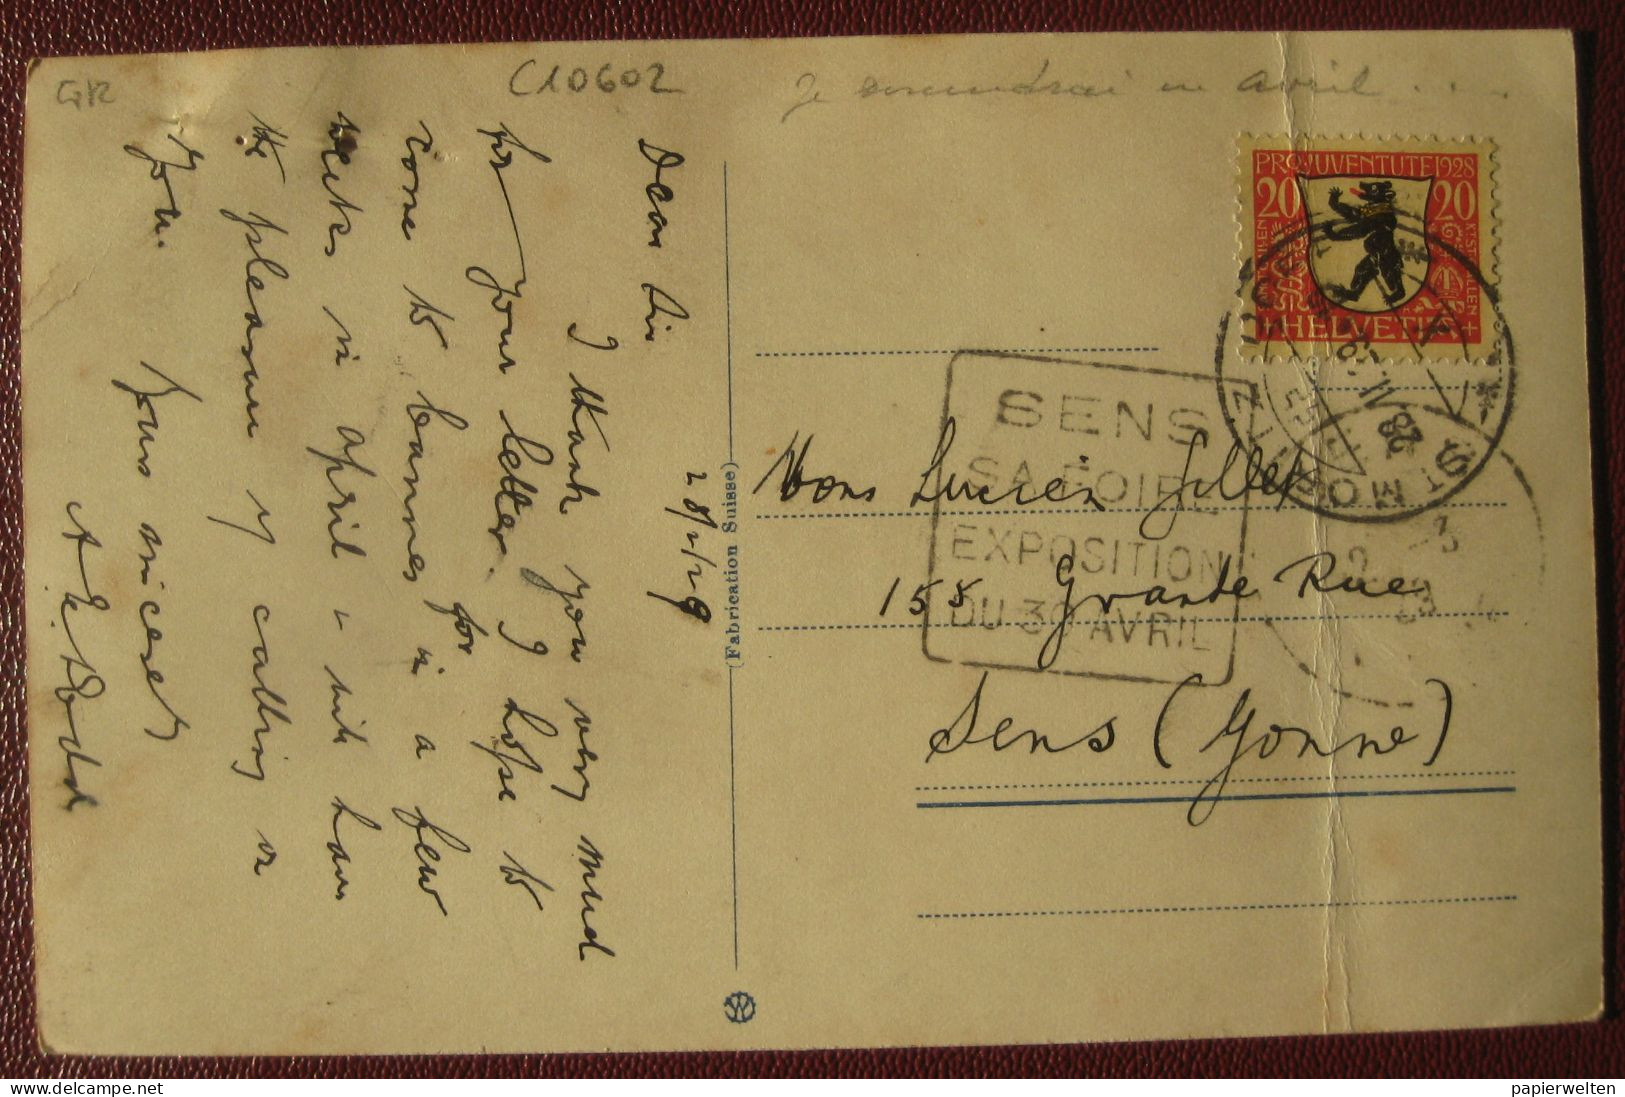 GR
C10602
Je en avril . . .
28/2/29
Dear Sir
I thank you very much
for your letter. I hope to
come to Cannes in a few
for
weeks in april & will have
the pleasure of calling on
You.
Yours sincerely
A E Dodd
(Fabrication Suisse)
PRO JUVENTUTE 1928
20 20
HELVETIA
ST. MORITZ
28.II.29
SENS
SA FOIRE
EXPOSITION
DU 30 AVRIL
Mons Lucien Gillet
155 Grande Rue
Sens (Yonne)
delcampe.net
papierwelten